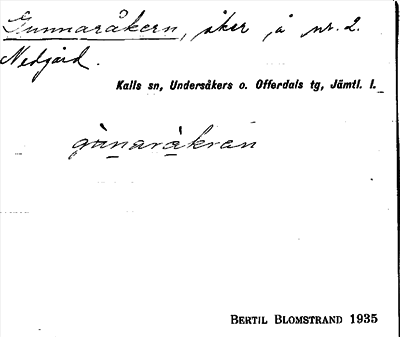 Gunnaråkern, åker å nr. 2.
Nedgård.
Kalls sn, Undersåkers o. Offerdals tg, Jämtl. l.
gùnaråkrän
BERTIL BLOMSTRAND 1935